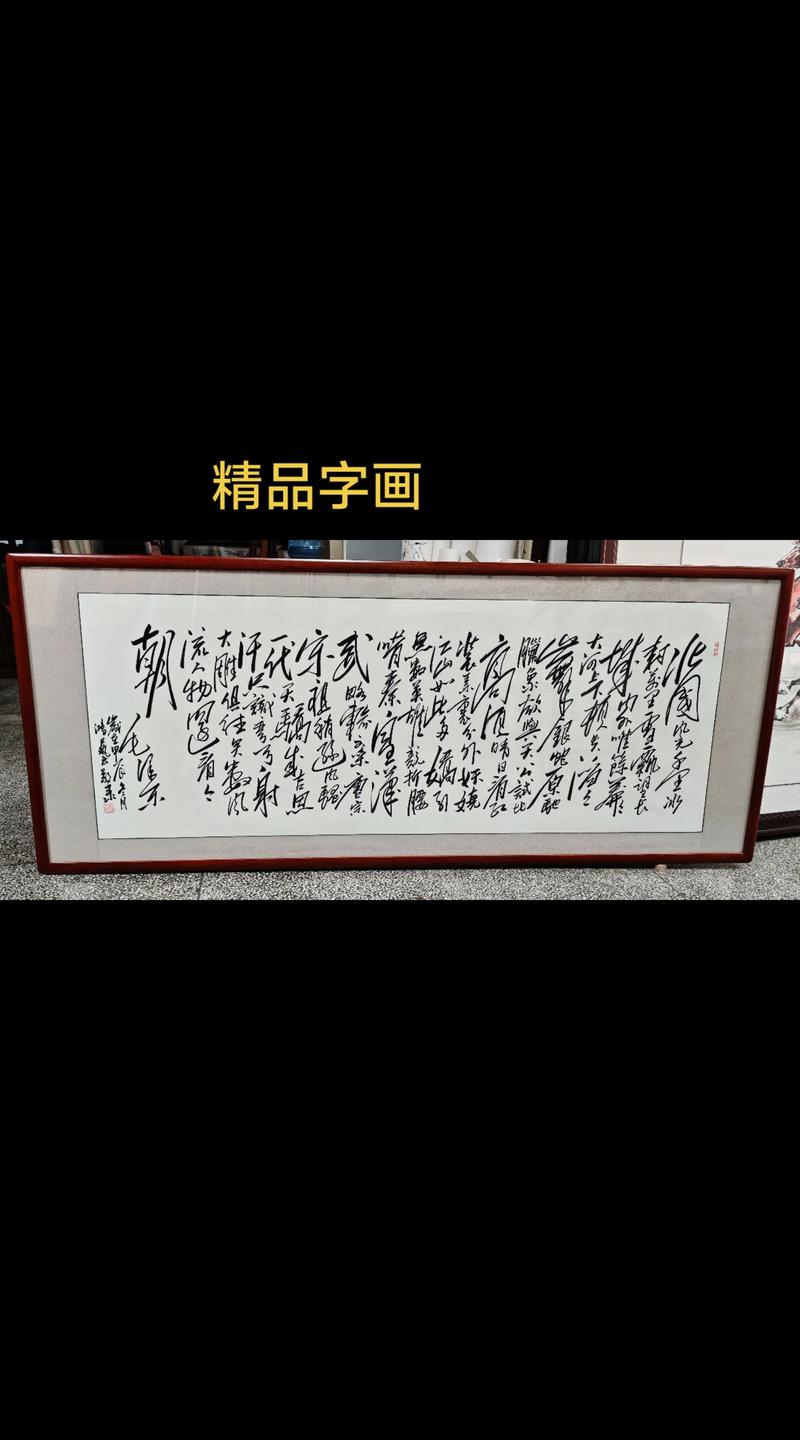 精品字画
北国风光千里冰
封万里雪飘望长
城内外惟余莽莽
大河上下顿失滔滔
山舞银蛇原驰
腊象欲与天公试比
高须晴日看红
装素裹分外妖娆
江山如此多娇引
无数英雄竞折腰
惜秦皇汉
武略输文采唐宗
宋祖稍逊风骚
一代天骄成吉思
汗只识弯弓射
大雕俱往矣数风
流人物还看今
朝
毛泽东
岁在甲辰冬月